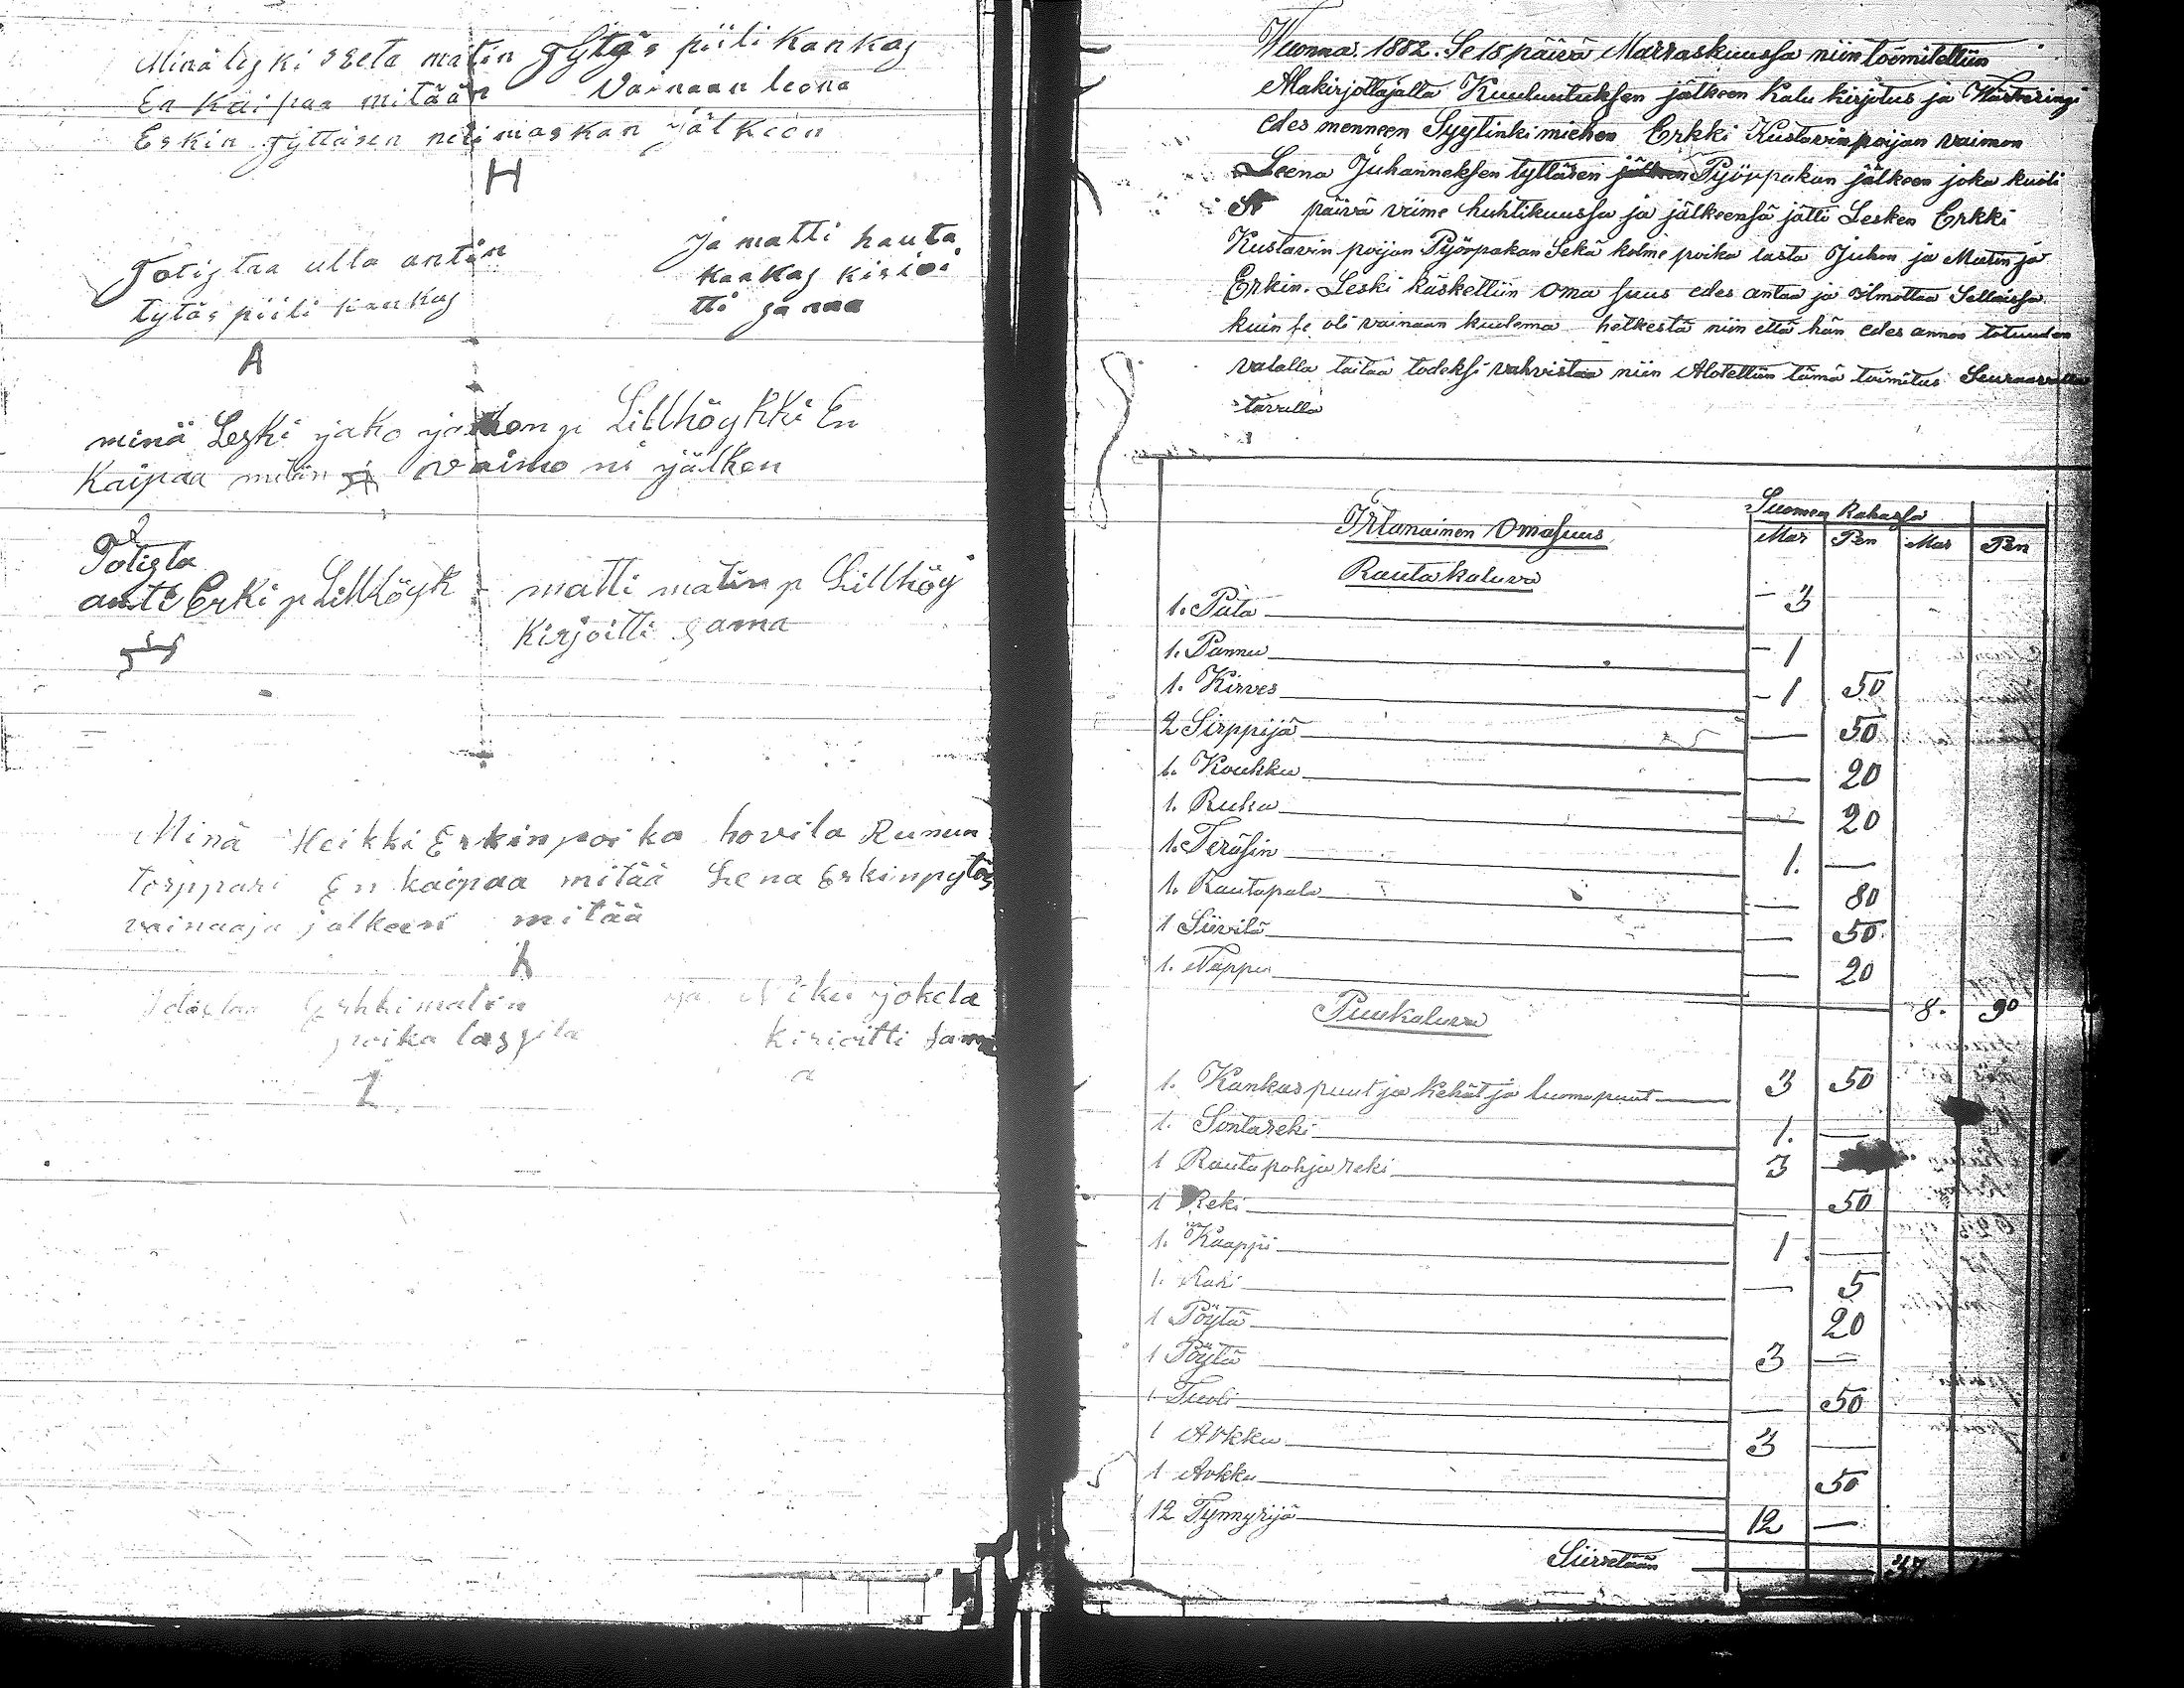 Minä leski Greta matin Tytär piilikankas
En kaipaa mitään Vainaan leena
Erkin Tyttären jälkeen
H
Totistaa ulla antin
tytär piili kankas
A
ja matti hauta
kankas kirioi
tti samaa
minä Leski jako Lillhöykki En
Kaipaa mitän vaimo ni jälken
Totista
anti Erki p Lillhöyk
matti matin p Lillhöy
Kirjoitti sama
Minä Heikki Erkinpoika hovila Runun
torppari En kaipaa mitää Lena Erkinpytär
vainaaja jalkeen mitää
h
Totistaa Erkki matin
poika lassila
ja jokela
kirioitti sama
a
Wuonna. 1882. Se 15 päivä Marraskuussa niin toomitettiin
Alakirjottajalla Kuulutuksen jälkeen Kalu kirjotus ja Wärteringi
edes menneen Syytinki miehen Erkki Kustavinpoijan vaimon
Leena Juhanneksen tyttären Pyörpakan jälkeen joka kuoli
päivä viime huhtikuussa ja jälkeensä jätti Lesken Erkki
Kustavin poijan Pyörpakan Sekä kolme poika lasta Juhon ja Matin ja
Erkin. Leski käskettiin oma suus edes antaa ja ilmottaa Sellaissa
kuin se oli vainaan kuolema hetkestä niin että hän edes annon totuuden
valalla taitaa todeksi vahvistaa niin Alotettiin tämä toimitus Seuraavalla
tavalla
Suomen Rahassa
Irtanainen Omasuus Mar Pen Mar Pen
Rautakaluva
1. Pata 3
1. Pannu 1
1. Kirves 1 50
2 Sirppijä 50
1. Koukku 20
1. Ruka 20
1. Teräsin 1. —
1. Rautapala 80
1 Siivilä 50
1. Nappu 20
8. 90
Puukaluva
1. Kankaspuut ja Kehät ja luomapuut 3 50
1. Sontareki 1. —
1 Rautapohja reki 3 —
1 Reki 50
1. Kaappi 1 —
1. 5
1 Pöytä 20
1 Pöytä 3 —
1 Tuoli 50
1 Arkku 3 —
1 Arkku 50
12 Tynnyrijä 12 —
Siirretään